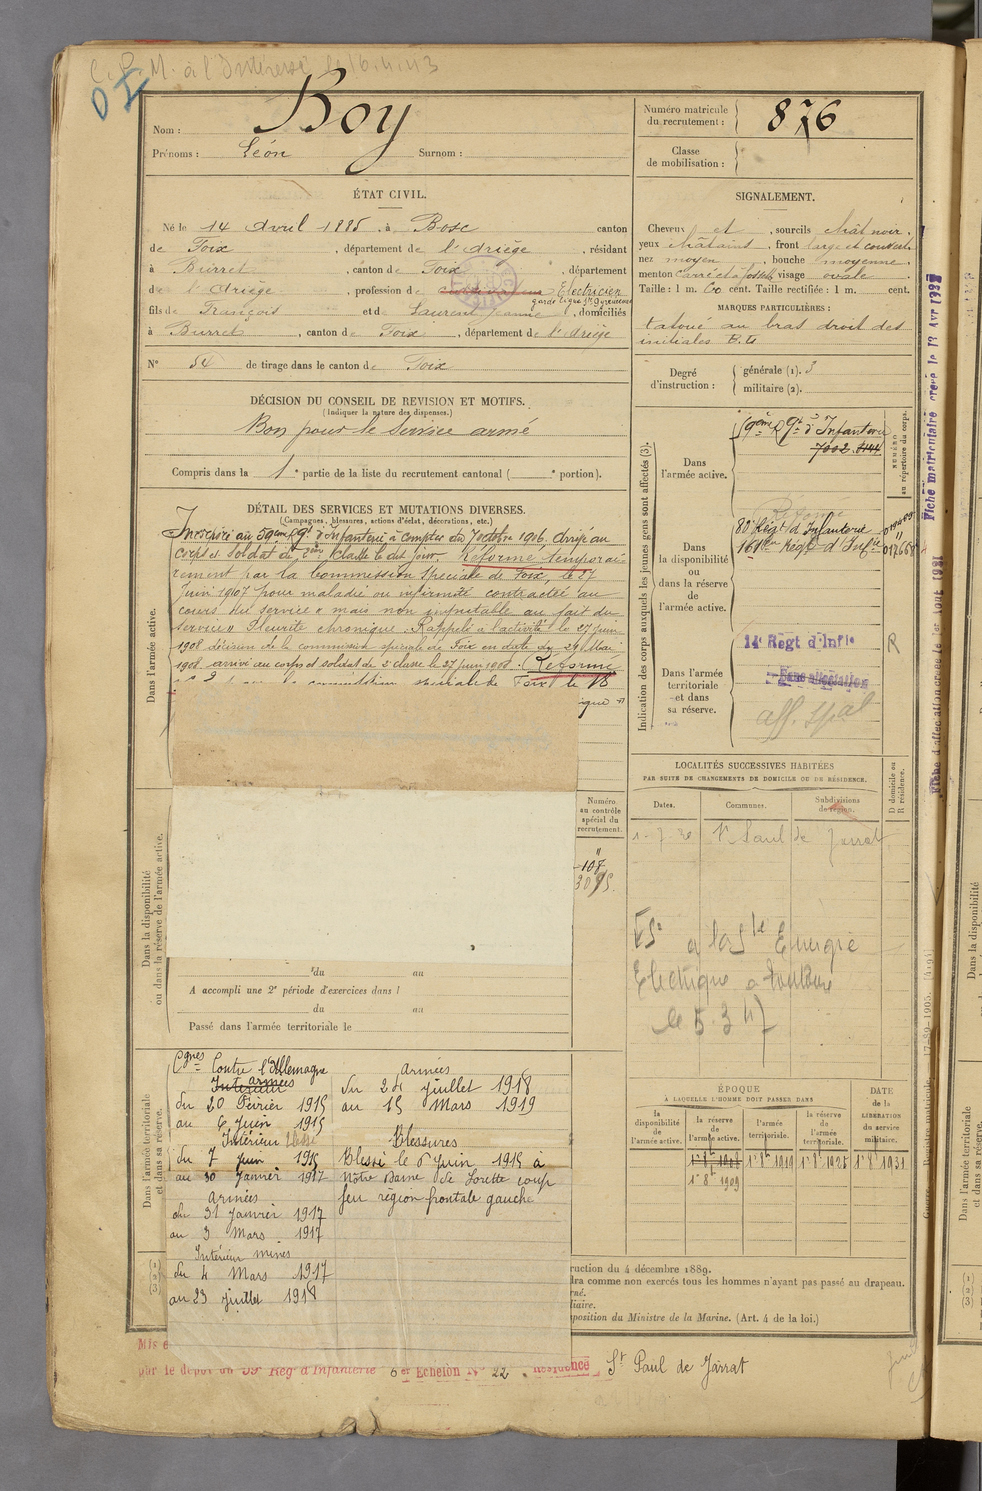 C. P. M. à l'Intéressé le 16.4.43
Nom : Boy
Prénoms : Léon Surnom :
Numéro matricule du recrutement : 876
Classe de mobilisation :
ÉTAT CIVIL.
Né le 14 Avril 1885, à Bosc canton
de Foix, département de l'Ariège, résidant
à Burret, canton de Foix, département
de l'Ariège, profession de Électricien
fils de François et de Laurent Jeanne, domiciliés
à Burret, canton de Foix, département de l'Ariège
N° 54 de tirage dans le canton de Foix
SIGNALEMENT.
Cheveux et, sourcils chât noir,
yeux châtains, front large et couvert
nez moyen, bouche moyenne,
menton carré et à fossette visage ovale
Taille : 1 m. 60 cent. Taille rectifiée : 1 m. cent.
MARQUES PARTICULIÈRES :
tatoué au bras droit des
initiales
Degré d'instruction : générale (1). 3
militaire (2).
DÉCISION DU CONSEIL DE REVISION ET MOTIFS.
(Indiquer la nature des dispenses.)
Bon pour le service armé
Compris dans la 1e partie de la liste du recrutement cantonal ( e portion).
DÉTAIL DES SERVICES ET MUTATIONS DIVERSES.
(Campagnes, blessures, actions d'éclat, décorations, etc.)
Incorporé au 59ème Rgt d'Infanterie à compter du 7 octobre 1906. Arrivé au
corps et soldat de 2ème classe le dit jour. Réformé temporai-
rement par la Commission spéciale de Foix, le 27
Juin 1907 pour maladie ou infirmité contractée au
cours du service « mais non imputable au fait du
service » Pleurite chronique. Rappelé à l'activité le 27 juin
1908 décision de la commission spéciale de Foix en date du 29 Mai
1908 arrivé au corps et soldat de 2e classe le 27 juin 1908. Réformé
commission spéciale de Foix le 18
Dans l'armée active.
Dans la disponibilité
ou dans la réserve de l'armée active.
Dans l'armée territoriale
et dans sa réserve.
Indication des corps auxquels les jeunes gens sont affectés (3).
NUMÉRO
au répertoire du corps.
Dans
l'armée active.
59ème Rgt d'Infanterie
7002
Dans
la disponibilité
ou
dans la réserve
de
l'armée active.
Réformé
80e Régt d'Infanterie
161ème Régt d'Infie
Dans l'armée
territoriale
et dans
sa réserve.
14e Régt d'Infie
R
Sans affectation
aff. spal
Fiche matriculaire créée le 13 Avr 1932
Fiche d'affectation créée le 1er Aout 1931
LOCALITÉS SUCCESSIVES HABITÉES
PAR SUITE DE CHANGEMENTS DE DOMICILE OU DE RÉSIDENCE.
D domicile ou R résidence.
Dates. Communes. Subdivisions de région.
St Paul de Jarrat
Numéro
au contrôle
spécial du
recrutement.
107
à la Sté Energie
Electrique à toulouse
le 5.3.4
du au
A accompli une 2e période d'exercices dans l
du au
Passé dans l'armée territoriale le
Cgnes Contre l'Allemagne
Intérieur armées
du 20 Février 1915
au 6 Juin 1915
Intérieur Blessé
du 7 Juin 1915
au 30 Janvier 1917
Armées
du 31 Janvier 1917
au 3 Mars 1917
Intérieur mines
du 4 Mars 1917
au 23 Juillet 1918
Armées
du 24 Juillet 1918
au 15 Mars 1919
Blessures
Blessé le 6 Juin 1915 à
Notre Dame de Lorette coup
feu région frontale gauche
ÉPOQUE
À LAQUELLE L'HOMME DOIT PASSER DANS
la disponibilité de l'armée active.
la réserve de l'armée active.
l'armée territoriale.
la réserve de l'armée territoriale.
DATE
de la
LIBÉRATION
du service
militaire.
1er 8bre 1908 1er 8bre 1919 1er 8bre 1925 1er 8bre 1931
1er 8bre 1909
ruction du 4 décembre 1889.
dra comme non exercés tous les hommes n'ayant pas passé au drapeau.
rné.
liaire.
position du Ministre de la Marine. (Art. 4 de la loi.)
Mis e
pour le dépôt du 59e Rég d'Infanterie 6er Echelon No 22 Résidence St Paul de Jarrat